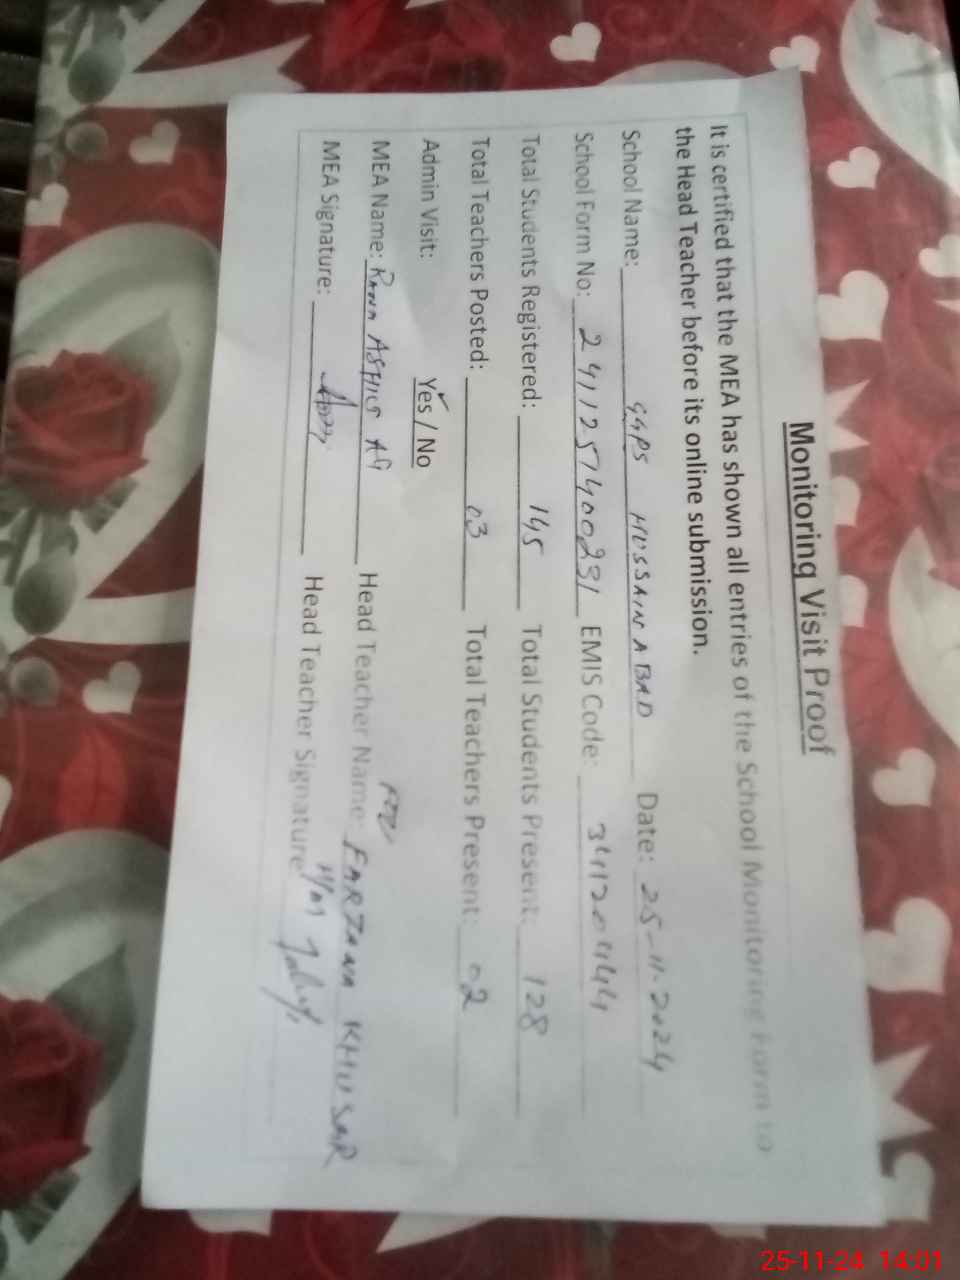 Monitoring Visit Proof
It is certified that the MEA has shown all entries of the School Monitoring Form to
the Head Teacher before its online submission.
School Name: GGPS HUSSAIN ABAD Date: 25-11-2024
School Form No: 2411257400231 EMIS Code: 34120444
Total Students Registered: 145 Total Students Present: 128
Total Teachers Posted: 03 Total Teachers Present: 02
Admin Visit: Yes / No
MEA Name: RANA Head Teacher Name: FARZANA
MEA Signature: Head Teacher Signature:
25-11-24 14:01